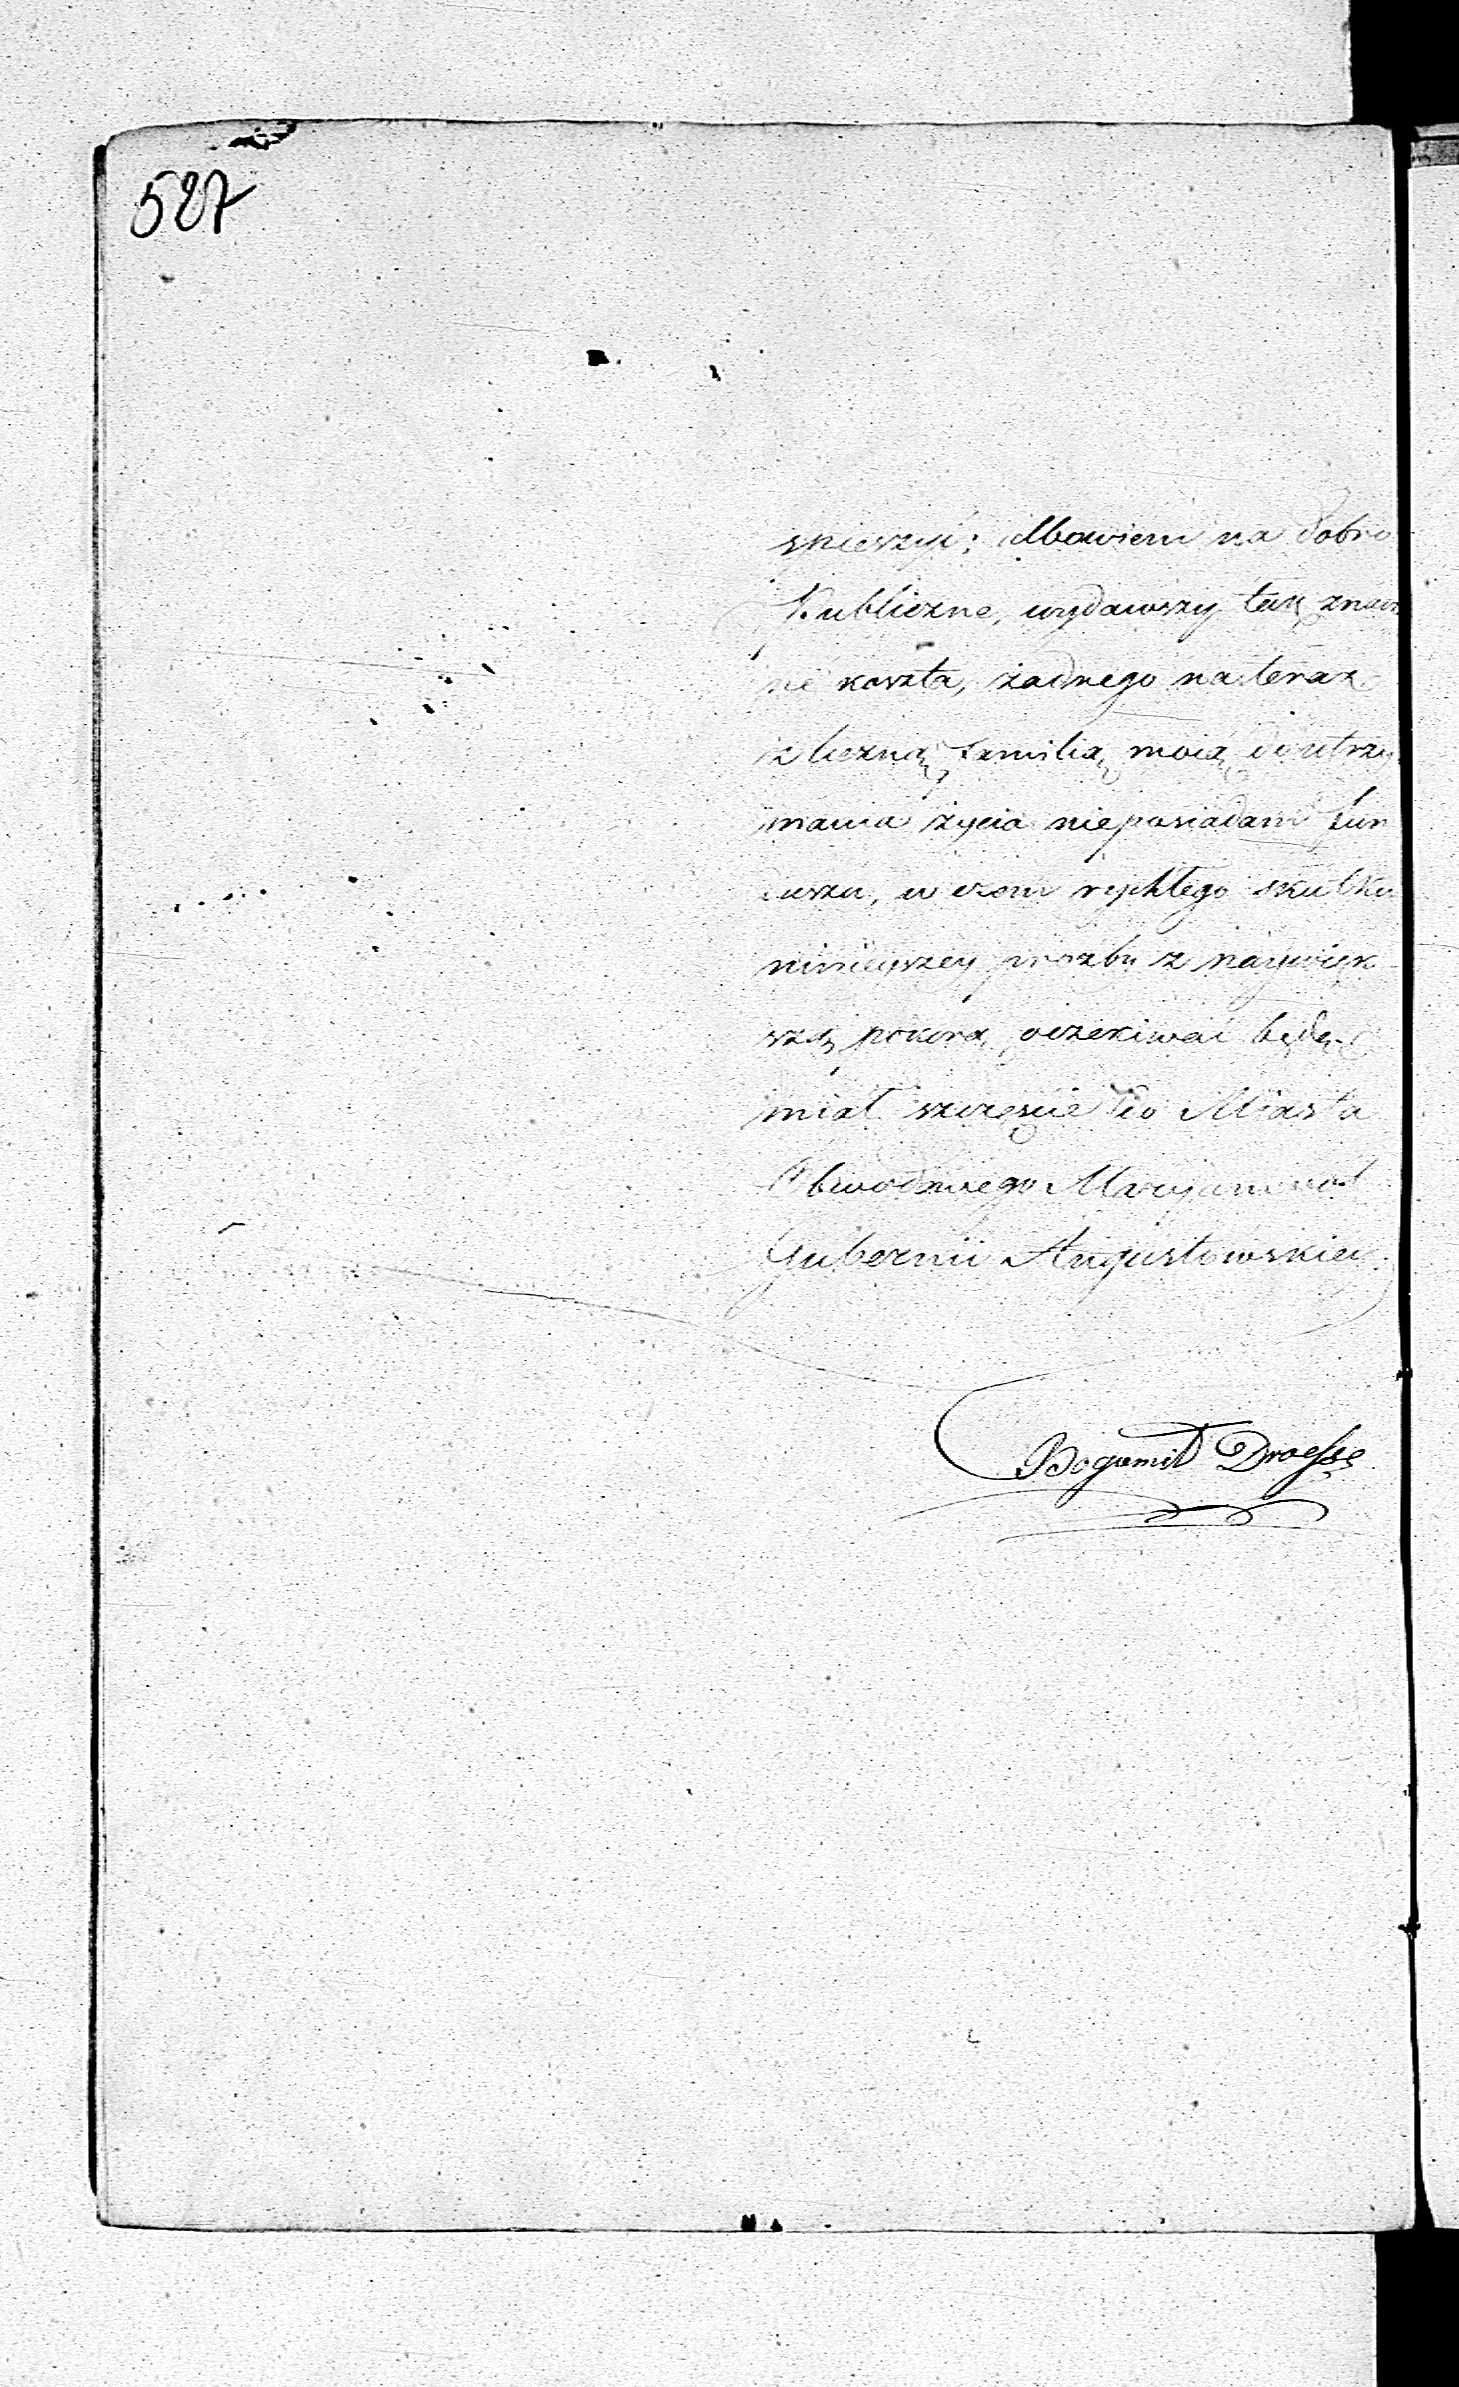 527
spieszyć: Albowiem na dobro
Publiczne, wydawszy tak znacz
ne koszta, żadnego na teraz
z liczną familią moią do utrzy
mania życia nieposiadam fun
duszu, w czem rychłego skutku
ninieyszey prozby z naywięk
szą pokorą oczekiwać będę
miał szczęscie do Miasta
Obwodowego Maryampol
Gubernii Augustowskiey
Bogumił Draesse